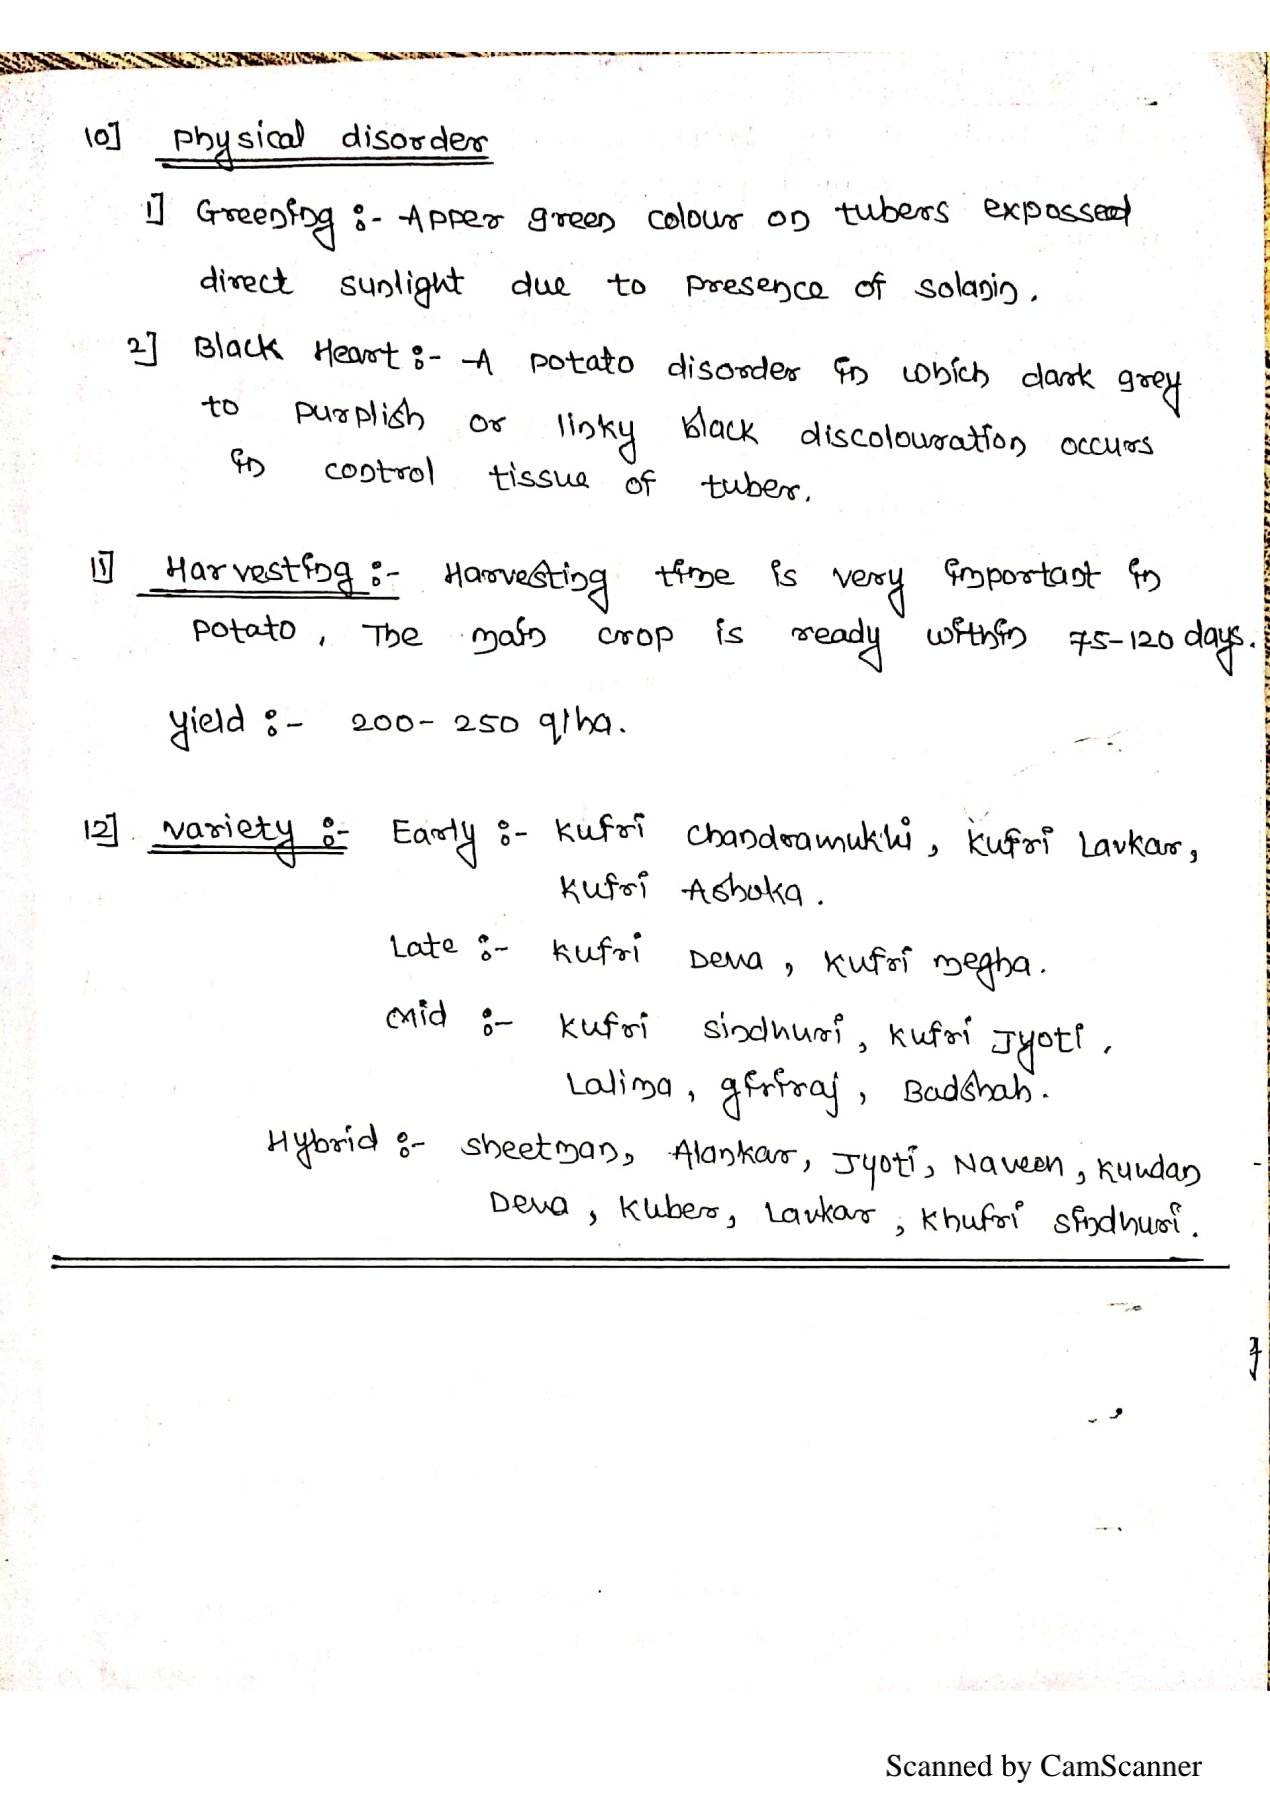 10] Physical disorder
1] Greening :- Apper green colour on tubers expossed
direct sunlight due to presence of solanin.
2] Black Heart :- A potato disorder in which dark grey
to purplish or linky black discolouration occurs
in control tissue of tuber.
11] Harvesting :- Harvesting time is very important in
potato, The main crop is ready within 75-120 days.
Yield :- 200-250 q/ha.
12] Variety :- Early :- Kufri Chandramukhi, Kufri Lavkar,
Kufri Ashoka.
Late :- Kufri Deva, Kufri megha.
Mid :- Kufri Sindhuri, Kufri Jyoti,
Lalima, giriraj, Badshah.
Hybrid :- Sheetman, Alankar, Jyoti, Naveen, Kundan
Deva, Kuber, Lavkar, Khufri Sindhuri.
Scanned by CamScanner